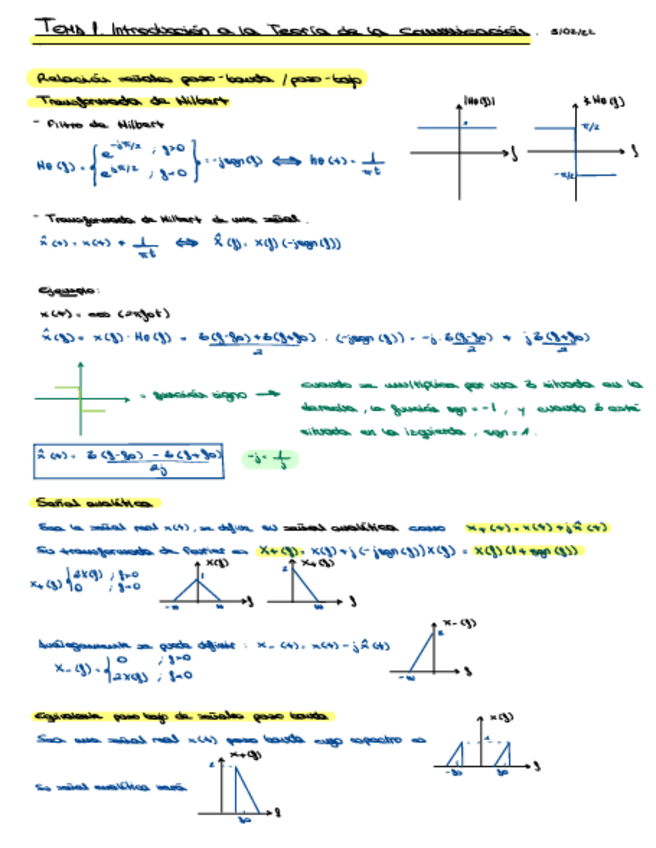 TEMA 1. Introducción a la Teoría de la comunicación. 3/02/22
Relación señales paso-banda / paso-bajo
Transformada de Hilbert
- Filtro de Hilbert
|H₀(f)|
1
f
∡H₀(f)
π/2
-π/2
f
H₀(f) = { e^{-jπ/2} ; f>0
e^{jπ/2} ; f<0 } = -jsgn(f) ⟺ h₀(t) = 1/πt
- Transformada de Hilbert de una señal.
x̂(t) = x(t) * 1/πt ⟺ X̂(f) = X(f)(-jsgn(f))
Ejemplo:
x(t) = cos(2πf₀t)
X̂(f) = X(f) · H₀(f) = δ(f-f₀)+δ(f+f₀)/2 · (-jsgn(f)) = -j · δ(f-f₀)/2 + jδ(f+f₀)/2
= función signo → cuando se multiplica por una δ situada en la
derecha, la función sgn = -1, y cuando δ esté
situada en la izquierda, sgn = 1.
x̂(t) = δ(f-f₀) - δ(f+f₀)/2j
-j = 1/j
Señal analítica
Sea la señal real x(t), se define su señal analítica como x₊(t) = x(t) + jx̂(t)
Su transformada de Fourier es X₊(f) = X(f) + j(-jsgn(f))X(f) = X(f)(1+sgn(f))
X₊(f) { 2X(f) ; f>0
0 ; f<0
X(f)
1
-W
W
f
X₊(f)
2
W
f
Análogamente se puede definir : x₋(t) = x(t) - jx̂(t)
X₋(f) = { 0 ; f>0
2X(f) ; f<0
X₋(f)
2
-W
f
Equivalente paso bajo de señales paso banda
Sea una señal real x(t) paso banda cuyo espectro es
X(f)
1
-f₀
f₀
f
Su señal analítica será
X₊(f)
2
f₀
f